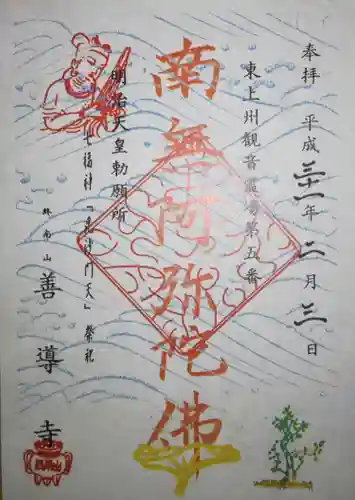 奉拝 平成三十一年二月三日
東上州観音霊場第五番
南無阿弥陀佛
明治天皇勅願所
七福神「毘沙門天」祭祀
終南山
善導寺